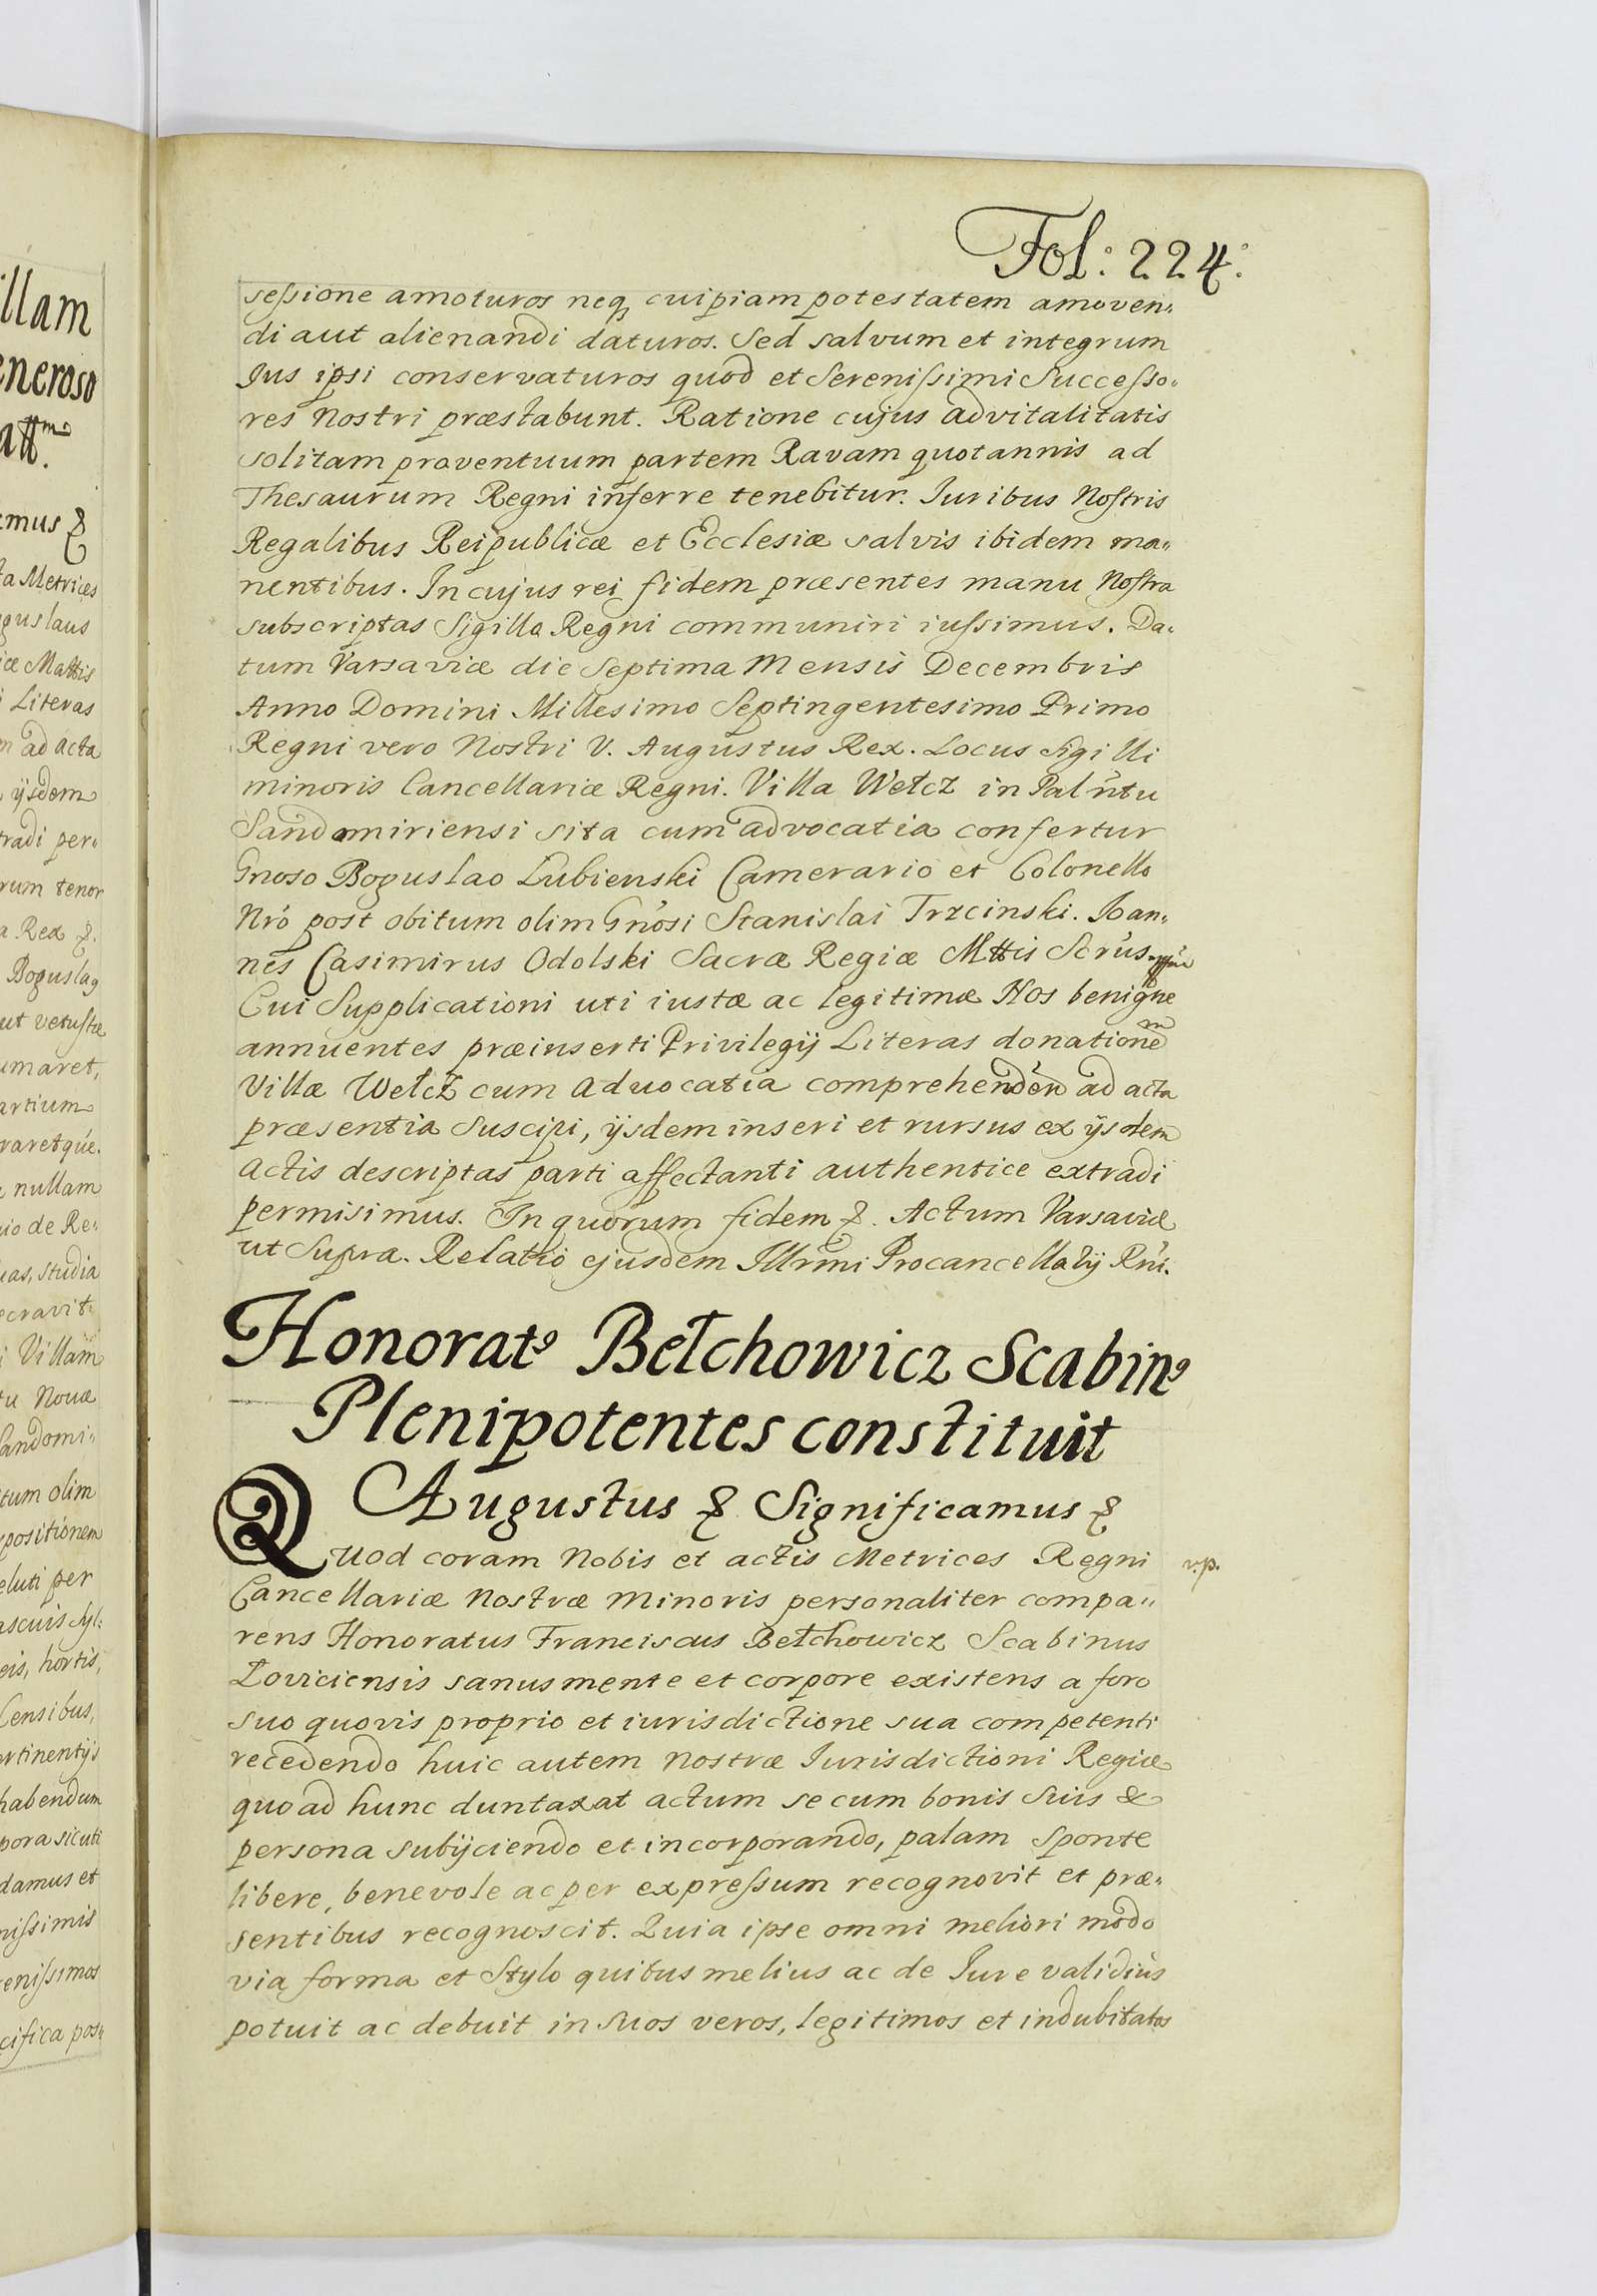 Fol: 224.
sessione amoturos neq, cuipiam potestatem amoven„
di aut alienandi daturos. Sed salvum et integrum
Jus ipsi conservaturos quod et Serenissimi Successo„
res Nostri præstabunt. Ratione cujus advitalitatis
solitam proventuum partem Ravam quotannis ad
Thesaurum Regni inferre tenebitur. Juribus Nostris
Regalibus Reipublicæ et Ecclesiæ salvis ibidem ma„
nentibus. In cujus rei fidem præsentes manu Nostra
subscriptas Sigillo Regni communiri iussimus. Da„
tum Varsaviæ die Septima Mensis Decembris
Anno Domini Millesimo Septingentesimo Primo
Regni vero Nostri V. Augustus Rex. Locus Sigilli
minoris Cancellariæ Regni. Villa Wełcz in Palńtu
Sandomiriensi sita cum advocatia confertur
Gnoso Boguslao Łubienski Camerario et Colonello
Nró post obitum olim Gnósi Stanislai Trzcinski. Joan„
nes Casimirus Odolski Sacræ Regiæ Mttis Scrús
Cui Supplicationi uti iustæ ac legitimæ Nos benigne
annuentes præinserti Privilegij Literas donationeͫ
Villæ Wełcz cum Advocatia comprehendeń ad acta
præsentia Suscipi, ijsdem inseri et rursus ex ijsdem
Actis descriptas parti affectanti authentice extradi
permisimus. In quorum fidem &. Actum Varsaviæ
ut Supra. Relatio ejusdem Illrmi Procancellarij Rńi.
Honoratꝰ Bełchowicz Scabinꝰ
Plenipotentes constituit
Augustus & Significamus &
Quod coram Nobis et actis Metrices Regni
v.p.
Cancellariæ Nostræ Minoris personaliter compa„
rens Honoratus Franciscus Bełchowicz Scabinus
Loviciensis sanus mente et corpore existens a foro
suo quovis proprio et iurisdictione sua competenti
recedendo huic autem Nostræ Jurisdictioni Regiæ
quo ad hunc duntaxat actum se cum bonis Suis &
persona subijciendo et incorporando, palam Sponte
libere, benevole ac per expressum recognovit et præ„
sentibus recognoscit. Quia ipse omni meliori modo
via forma et Stylo quibus melius ac de Jure validius
potuit ac debuit in Suos veros, legitimos et indubitatos
illam
eneroso
att.mo
emus &
ta Metrices
guslaus
iæ Mattis
i Literas
m ad acta
ijsdem
tradi per„
rum tenor
a Rex &.
Boguslaꝰ
ut vetustæ
umaret,
artium
raretqué.
nullam
io de Re„
uas, studia
ecravit
i Villam
tu Novæ
Sandomi„
itum olim
xpositionem
eluti per
ascuis Syl:
eis, hortis,
Censibus,
ertinentijs
habendum
pora sicuti
damus et
nissimis
enissimos
cifica pos„